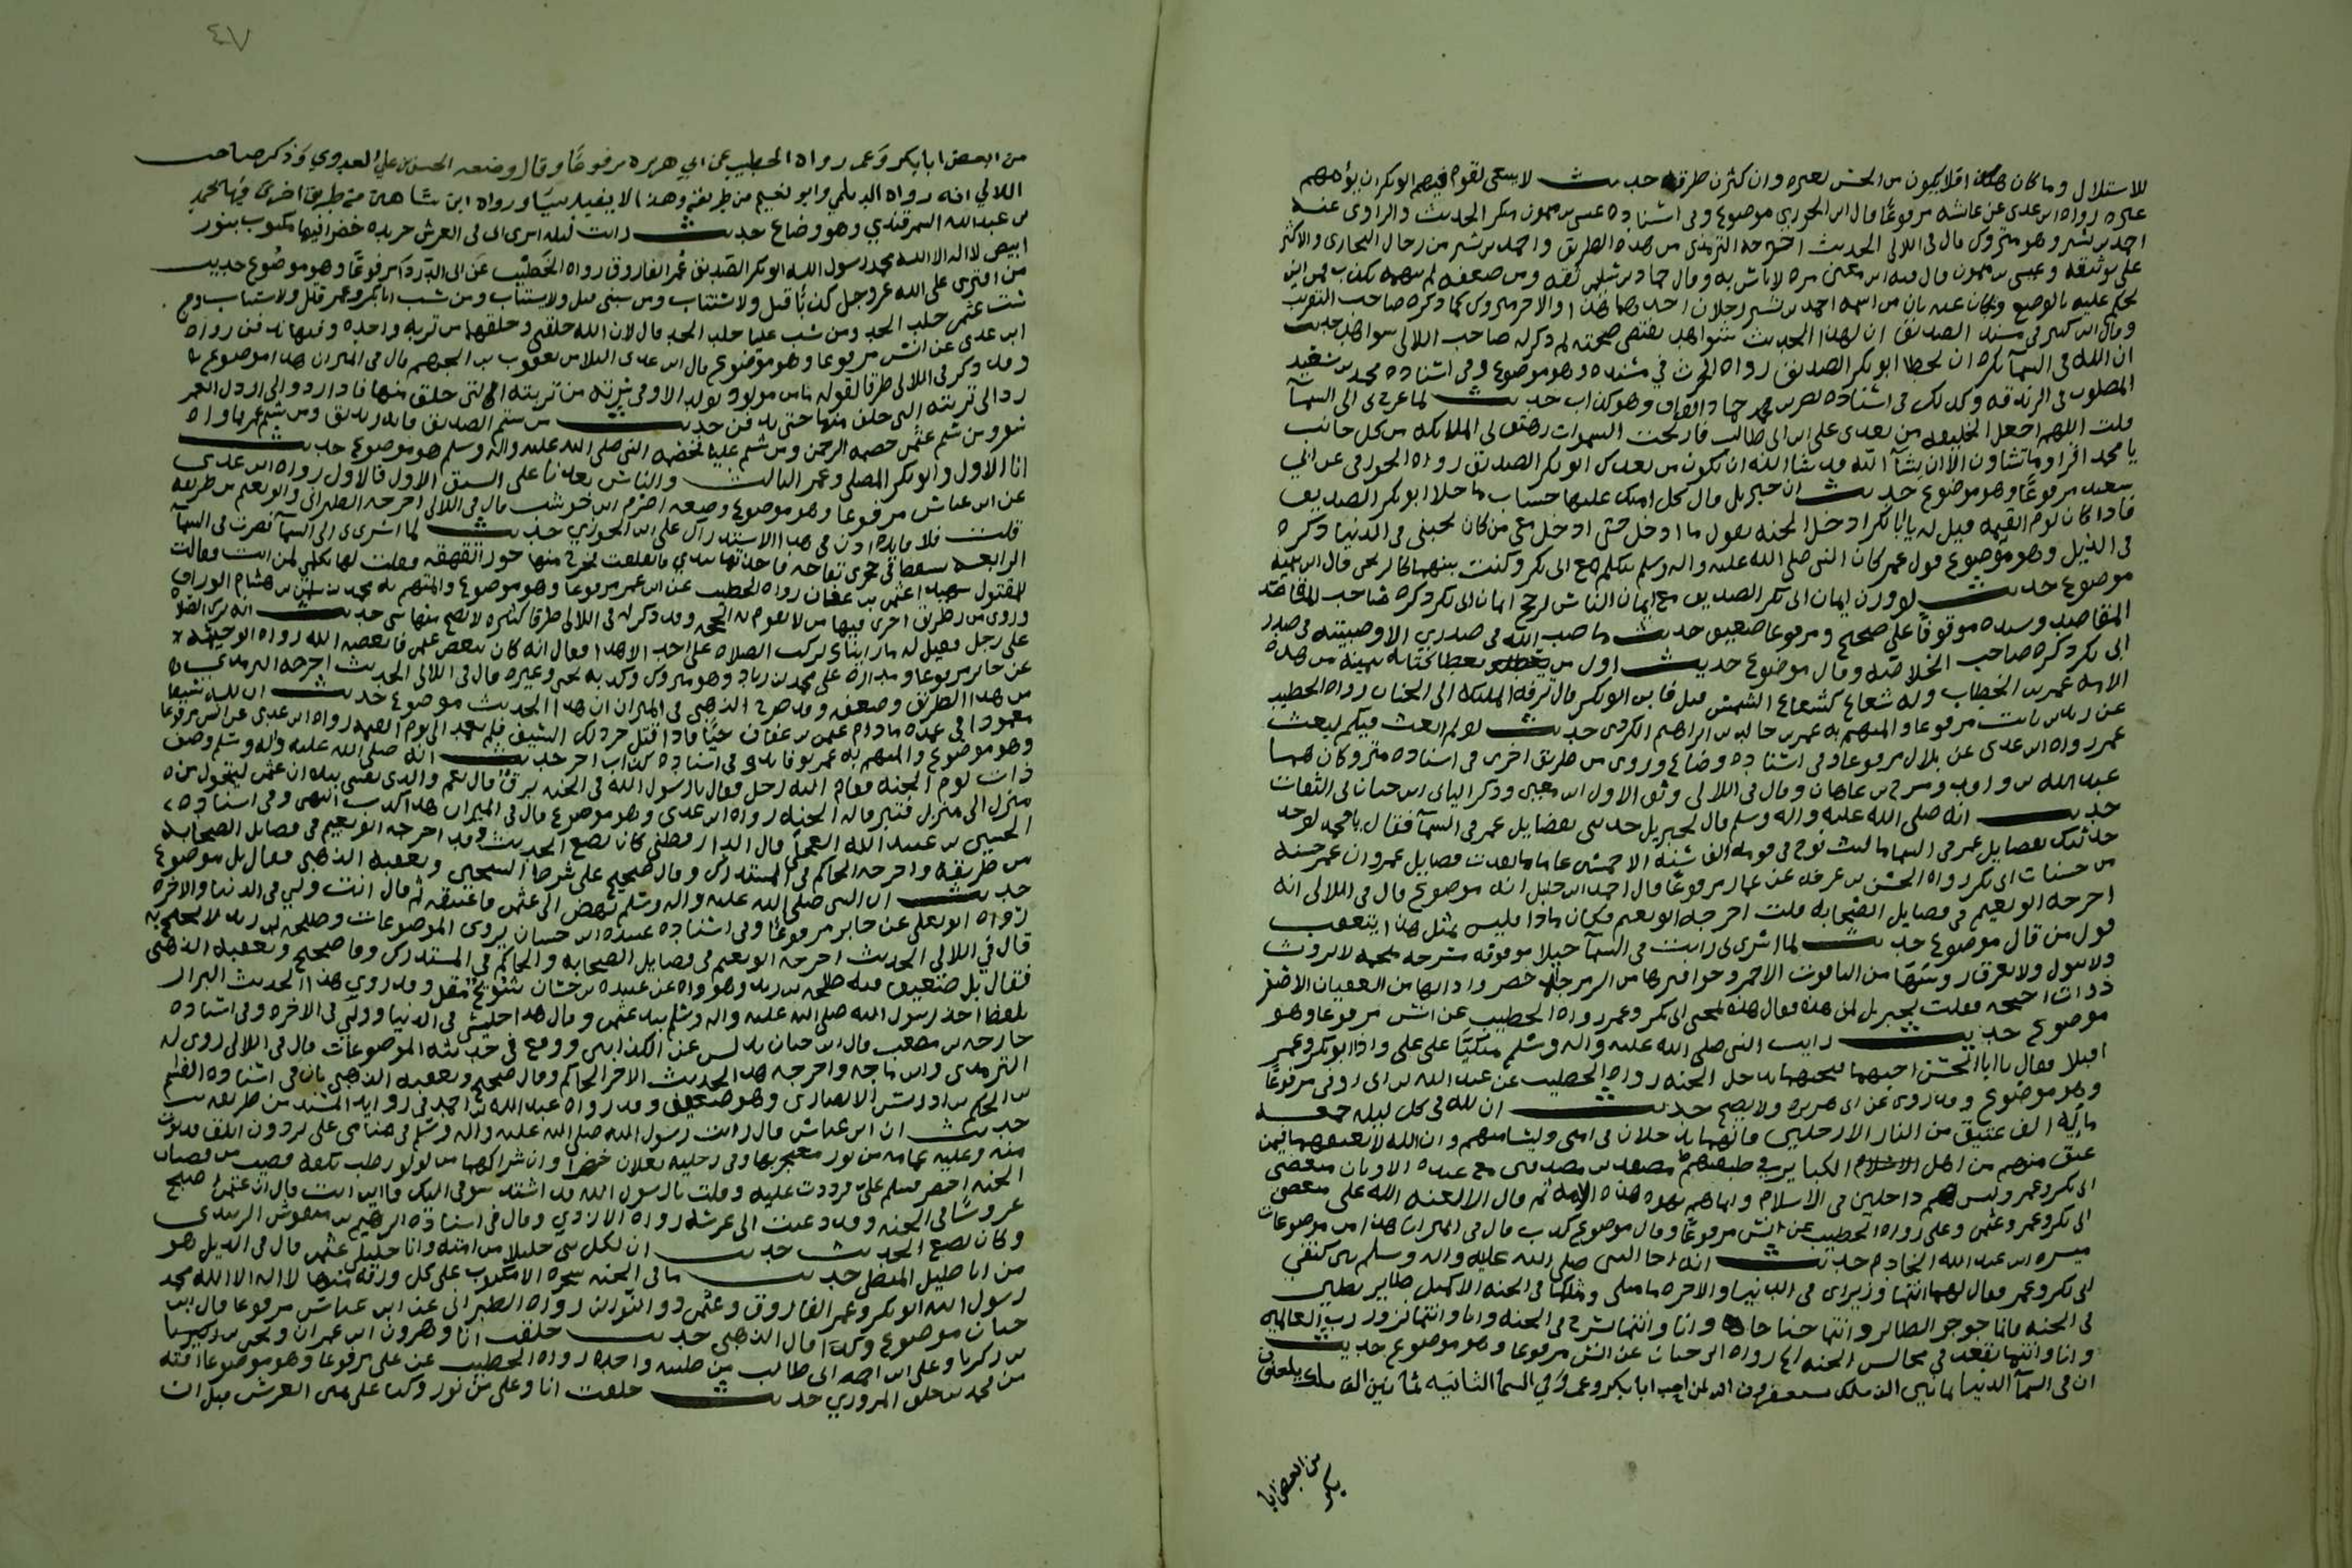 للاستلال وما كان هكذا فلا يكون من الحسن لغيره وان كثرت طرقه حديث لا ينبغي لقوم فيهم ابو بكر ان يؤمهم
غيره رواه ابن عدي عن عائشه مرفوعًا قال ابن الجوزي موضوع وفي اسناده عيسى بن ميمون منكر الحديث والراوي عنه
احمد بن بشير وهو متروك قال في اللالي الحديث اخرجه الترمذي من هذه الطريق واحمد بن بشير من رجال البخاري والاكثر
على توثيقه وعيسى بن ميمون قال فيه ابن معين مره لا باس به وقال حماد بن سلمه ثقه ومن ضعفه لم يتهمه بكذب فمن اين
يحكم عليه بالوضع ويجاب عنه بان من اسمه احمد بن بشير رجلان احدهما هذا والاخر متروك كما ذكره صاحب التقريب
وقال ابن كثير في مسند الصديق ان لهذا الحديث شواهد تقتضي صحته ثم ذكر له صاحب اللالي شواهد حديث
ان الله في السمآ يكره ان يخطا ابو بكر الصديق رواه الحرث في مسنده وهو موضوع وفي اسناده محمد بن سعيد
المصلوب في الزندقه وكذلك في اسناده نصر بن حماد الوراق وهو كذاب حديث لما عرج بي الى السمآ
قلت اللهم اجعل الخليفه من بعدي علي ابن ابي طالب فارتجت السموات وهتف بي الملائكه من كل جانب
يا محمد اقرا وما تشاون الا ان يشآ الله قد شا الله ان يكون من بعدك ابو بكر الصديق رواه الجوزقي عن ابي
سعيد مرفوعًا وهو موضوع حديث ان جبريل قال كل امتك عليها حساب ما خلا ابو بكر الصديق
فاذا كان يوم القيمه قيل له يا ابا بكر ادخل الجنه يقول ما ادخل حتى ادخل معي من كان يحبني في الدنيا ذكره
في الذيل وهو موضوع قول عمر كان النبي صلى الله عليه واله وسلم يتكلم مع ابي بكر وكنت بينهما كالزنجي قال ابن تيميه
موضوع حديث لو وزن ايمان ابي بكر الصديق مع ايمان الناس لرجح ايمان ابي بكر ذكره صاحب المقاصد
المقاصد وسنده موقوفًا على عمر صحيح ومرفوعا ضعيف حديث ما صب الله في صدري الا وصببته في صدر
ابي بكر ذكره صاحب الخلاصه وقال موضوع حديث اول من يعطا كتابه بيمينه من هذه
الامه عمر بن الخطاب وله شعاع كشعاع الشمس قيل فاين ابو بكر قال تزفه الملايكه الى الجنان رواه الخطيب
عن زيد بن ثابت مرفوعا والمتهم به عمر بن خالد بن ابراهيم الكردي حديث لو لم ابعث فيكم لبعث
عمر رواه ابن عدي عن بلال مرفوعا وفي اسناده وضاع وروي من طريق اخرى في اسناده متروكان هما
عبد الله بن واقد ومشرح بن عاهان وقال في اللالي وثق الاول ابن معين وذكر الثاني ابن حبان في الثقات
حديث انه صلى الله عليه واله وسلم قال لجبريل حدثني بفضايل عمر في السمآ فقال يا محمد لو
حدثتك بفضايل عمر في السما ما لبث نوح في قومه الف سنة الا خمسين عاما ما نفدت فضايل عمر وان عمر حسنه
من حسنات ابي بكر رواه الحسن بن عرفه عن عمار مرفوعًا قال احمد ابن حنبل انه موضوع قال في اللالي انه
اخرجه ابو نعيم في فضايل الصحابه قلت اخرجه ابو نعيم فكان ماذا فليس بمثل هذا يتعقب
قول من قال موضوع حديث لما اسري بي رايت في السمآ خيلا موقوفه مسرجه ملجمه لا تروث
ولا تبول ولا تعرق روسها من الياقوت الاحمر وحوافرها من الزمرجد الاخضر وابدانها من العقيان الاصفر
ذوات اجنحه فقلت يا جبريل لمن هذه فقال هذه لمحبي ابي بكر وعمر رواه الخطيب عن انس مرفوعا وهو
موضوع حديث رايت النبي صلى الله عليه واله وسلم متكيًا على علي واذا ابو بكر وعمر
اقبلا فقال يا ابا الحسن احبهما فبحبهما تدخل الجنه رواه الخطيب عن عبد الله بن ابي اوفى مرفوعًا
وهو موضوع وقد روي عن ابي هريره ولا يصح حديث ان لله في كل ليله جمعه
مايه الف عتيق من النار الا رجلين فانهما يدخلان في امتي وليسا منهم وان الله لا يعتقهما فيمن
عتق منهم من اهل الكباير في طبقتهم مصفدين مع عبدة الاوثان مبغضي
ابي بكر وعمر وليس هم داخلين في الاسلام وانما هم يهود هذه الامه ثم قال الا لعنه الله على مبغضي
ابي بكر وعمر وعثمن وعلي رواه الخطيب عن انس مرفوعًا وقال موضوع كذب قال في الميزان هذا من موضوعات
ميسره ابن عبد الله الخادم حديث انه اخا النبي صلى الله عليه واله وسلم بين كتفي
ابي بكر وعمر وقال لهما انتما وزيراي في الدنيا والاخره ما مثلي ومثلكما في الجنه الا كمثل طاير يطير
في الجنه فانا جوجو الطاير وانتما جناحاه وانا وانتما نسرح في الجنه وانا وانتما نزور رب العالمين
وانا وانتما نقعد في مجالس الجنه الخ رواه ابن حبان عن انس مرفوعا وهو موضوع حديث
ان في السمآ الدنيا ثمانين الف ملك يستغفرون الله لمن احب ابا بكر وعمر وفي السمآ الثانيه ثمانين الف ملك يلعنون
من البغض ابا
بكر
٤٧
من ابغض ابا بكر وعمر رواه الخطيب عن ابي هريره مرفوعًا وقال وضعه الحسن بن علي العدوي وذكر صاحب
اللالي انه رواه الديلمي وابو نعيم من طريقه وهذا لا يفيد شيًا ورواه ابن شاهين من طريق اخرى فيها محمد
بن عبد الله السمرقندي وهو وضاع حديث رايت ليله اسري بي في العرش جريده خضرا فيها مكتوب بنور
ابيض لا اله الا الله محمد رسول الله ابو بكر الصديق عمر الفاروق رواه الخطيب عن ابي الدردا مرفوعًا وهو موضوع حديث
من افترى على الله عز وجل كذبًا قتل ولا يستتاب ومن سبني قتل ولا يستتاب ومن سب ابا بكر وعمر قتل ولا يستتاب ومن
سب عثمن جلد الحد ومن سب عليا جلد الحد قال لان الله خلقني وخلقهما من تربه واحده وفيها ندفن رواه
ابن عدي عن انس مرفوعا وهو موضوع قال ابن عدي البلا من يعقوب بن الجهم قال في الميزان هذا موضوع
وقد ذكر في اللالي طرقا لقوله ما من مولود يولد الا وفي سرته من تربته التي خلق منها فاذا رد الى ارذل العمر
رد الى تربته التي خلق منها حتى يدفن حديث من شتم الصديق فانه زنديق ومن شتم عمر فماواه
سقر ومن شتم عثمن خصمه الرحمن ومن شتم عليا فخصمه النبي صلى الله عليه واله وسلم هو موضوع حديث
انا الاول وابو بكر المصلي وعمر الثالث والناس بعدنا على السبق الاول فالاول رواه ابن عدي
عن ابن عباس مرفوعا وهو موضوع وضعه اصرم ابن حوشب قال في اللالي اخرجه الطبراني وابو نعيم من طريقه
قلت فلا فايده اذن في هذا الاستدراك على ابن الجوزي حديث لما اسري بي الى السمآ فصرت في السمآ
الرابعه سقط في حجري تفاحه فاخذتها بيدي فانفلقت فخرج منها حورا تقهقه فقلت لها تكلمي لمن انت فقالت
للمقتول شهيدا عثمن بن عفان رواه الخطيب عن ابن عمر مرفوعا وهو موضوع والمتهم به محمد بن سليمن بن هشام الوراق
وروي من طريق اخرى فيها من لا تقوم به الحجه وقد ذكر له في اللالي طرقا كثيره لا يصح منها شي حديث انه ترك الصلاة
على رجل فقيل له ما رايناك تركت الصلاه على احد الا هذا فقال انه كان يبغض عثمن فابغضه الله رواه
عن جابر مرفوعا ومداره على محمد بن زياد وهو متروك وكذبه يحيى وغيره قال في اللالي الحديث اخرجه الترمذي
من هذا الطريق وضعفه وقد صرح الذهبي في الميزان ان هذا الحديث موضوع حديث ان لله سيفا
مغمودا في غمده ما دام عثمن بن عفان حيًا فاذا قتل جرد ذلك السيف فلم يغمد الى يوم القيمه رواه ابن عدي عن انس مرفوعا
وهو موضوع والمتهم به عمر بن فايد وفي اسناده كذاب اخر حديث انه صلى الله عليه واله وسلم وصف
ذات يوم الجنه فقام اليه رجل فقال يا رسول الله في الجنه برق قال نعم والذي نفسي بيده ان عثمن ليتحول من
منزل الى منزل فتبرق له الجنه رواه ابن عدي وهو موضوع قال في الميزان هذا كذب انتهى وفي اسناده
الحسين بن عبيد الله العجلي قال الدارقطني كان يضع الحديث وقد اخرجه ابو نعيم في فضايل الصحابه
من طريقه واخرجه الحاكم في المستدرك وقال صحيح على شرط الشيخين وتعقبه الذهبي فقال بل موضوع
حديث ان النبي صلى الله عليه واله وسلم نهض الى عثمن فاعتنقه ثم قال انت وليي في الدنيا والاخره
رواه ابو يعلى عن جابر مرفوعًا وفي اسناده عبيده ابن حسان يروي الموضوعات وطلحه بن زيد لا يحتج به
قال في اللالي الحديث اخرجه ابو نعيم في فضايل الصحابه والحاكم في المستدرك وقال صحيح وتعقبه الذهبي
فقال بل ضعيف فيه طلحه بن زيد وهو واه عن عبيده بن حسان شويخ مقل وقد روى هذا الحديث البزار
بلفظ اخذ رسول الله صلى الله عليه واله وسلم بيد عثمن وقال هذا جليسي في الدنيا ووليي في الاخره وفي اسناده
خارجه بن مصعب قال ابن حبان يدلس عن الكذابين ووقع في حديثه الموضوعات قال في اللالي روى له
الترمذي وابن ماجه واخرجه هذا الحديث الاخر الحاكم وقال صحيح وتعقبه الذهبي بان في اسناده القسم
بن الحكم بن اوس الانصاري وهو ضعيف وقد رواه عبد الله بن احمد في زوايد المسند من طريقه
حديث ان ابن عباس قال رايت رسول الله صلى الله عليه واله وسلم في منامي على برذون ابلق
منه وعليه عمامه من نور معتجر بها وفي رجليه نعلان خضرا وان شراكهما من لولو رطب بكفه قضيب من قضبان
الجنه اخضر فسلم علي فرددت عليه وقلت يا رسول الله قد اشتد شوقي اليك فاين انت قال ان عثمن اصبح
عروسًا في الجنه وقد دعيت الى عرسه رواه الازدي وقال في اسناده ابراهيم بن منقوش الزبيدي
وكان يضع الحديث حديث ان لكل نبي خليلا من امته وانا خليلي عثمن قال في الذيل هو
من اباطيل الملطي حديث ما في الجنه شجره الا مكتوب على كل ورقه منها لا اله الا الله محمد
رسول الله ابو بكر وعمر الفاروق وعثمن ذو النورين رواه الطبراني عن ابن عباس مرفوعا قال ابن
حبان موضوع وكذا قال الذهبي حديث خلقت انا وهرون ابن عمران ويحيى بن زكريا
وعلي ابن ابي طالب من طينه واحده رواه الخطيب عن علي مرفوعا وهو موضوع افته
من محمد بن خلف المروزي حديث خلقت انا وعلي من نور وكنا على يمين العرش قبل ان